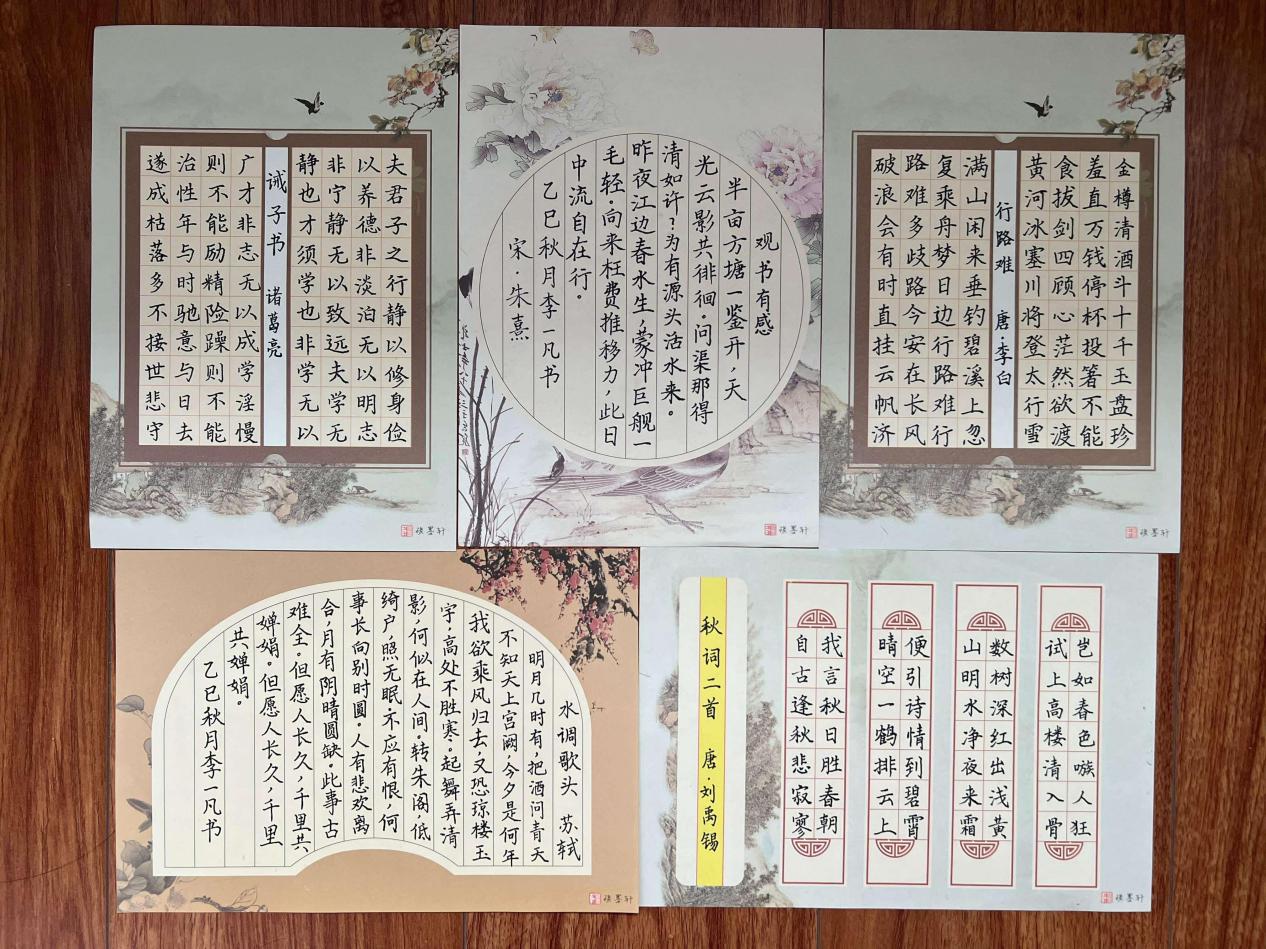 夫君子之行静以修身俭
以养德非淡泊无以明志
非宁静无以致远夫学无
静也才须学也非学无以
诫子书 诸葛亮
广才非志无以成学淫慢
则不能励精险躁则不能
治性年与时驰意与日去
遂成枯落多不接世悲守
观书有感
半亩方塘一鉴开，天
光云影共徘徊。问渠那得
清如许？为有源头活水来。
昨夜江边春水生，蒙冲巨舰一
毛轻。向来枉费推移力，此日
中流自在行。
乙巳秋月李一凡书
宋·朱熹
金樽清酒斗十千玉盘珍
羞直万钱停杯投箸不能
食拔剑四顾心茫然欲渡
黄河冰塞川将登太行雪
行路难 唐·李白
满山闲来垂钓碧溪上忽
复乘舟梦日边行路难行
路难多歧路今安在长风
破浪会有时直挂云帆济
水调歌头 苏轼
明月几时有，把酒问青天
不知天上宫阙，今夕是何年
我欲乘风归去，又恐琼楼玉
宇，高处不胜寒。起舞弄清
影，何似在人间。转朱阁，低
绮户，照无眠。不应有恨，何
事长向别时圆。人有悲欢离
合，月有阴晴圆缺。此事古
难全。但愿人长久，千里共
婵娟。但愿人长久，千里
共婵娟。
乙巳秋月李一凡书
秋词二首 唐·刘禹锡
自古逢秋悲寂寥
我言秋日胜春朝
晴空一鹤排云上
便引诗情到碧霄
山明水净夜来霜
数树深红出浅黄
试上高楼清入骨
岂如春色嗾人狂